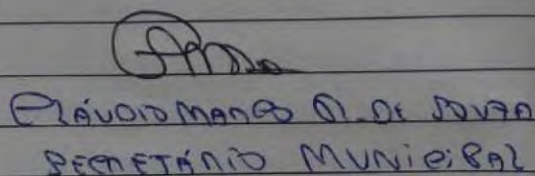 CLÁUDIO MARCO A. DE SOUZA
SECRETÁRIO MUNICIPAL